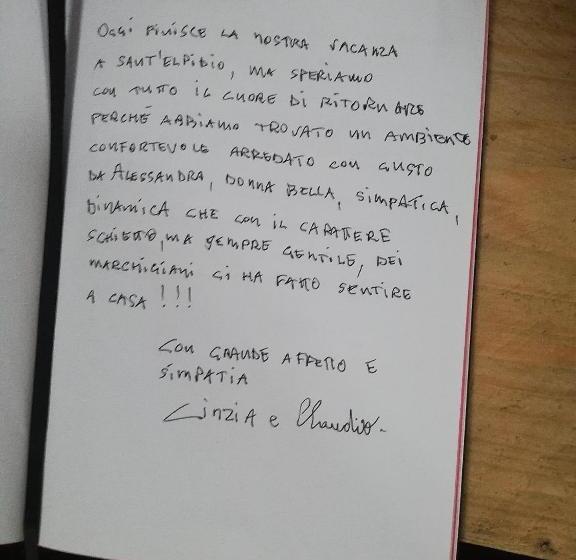 Oggi finisce la nostra vacanza
a Sant'Elpidio, ma speriamo
con tutto il cuore di ritornare
perché abbiamo trovato un ambiente
confortevole arredato con gusto
da Alessandra, donna bella, simpatica,
dinamica che con il carattere
schietto, ma sempre gentile, dei
marchigiani ci ha fatto sentire
a casa !!!
Con grande affetto e
simpatia
Cinzia e Claudio.